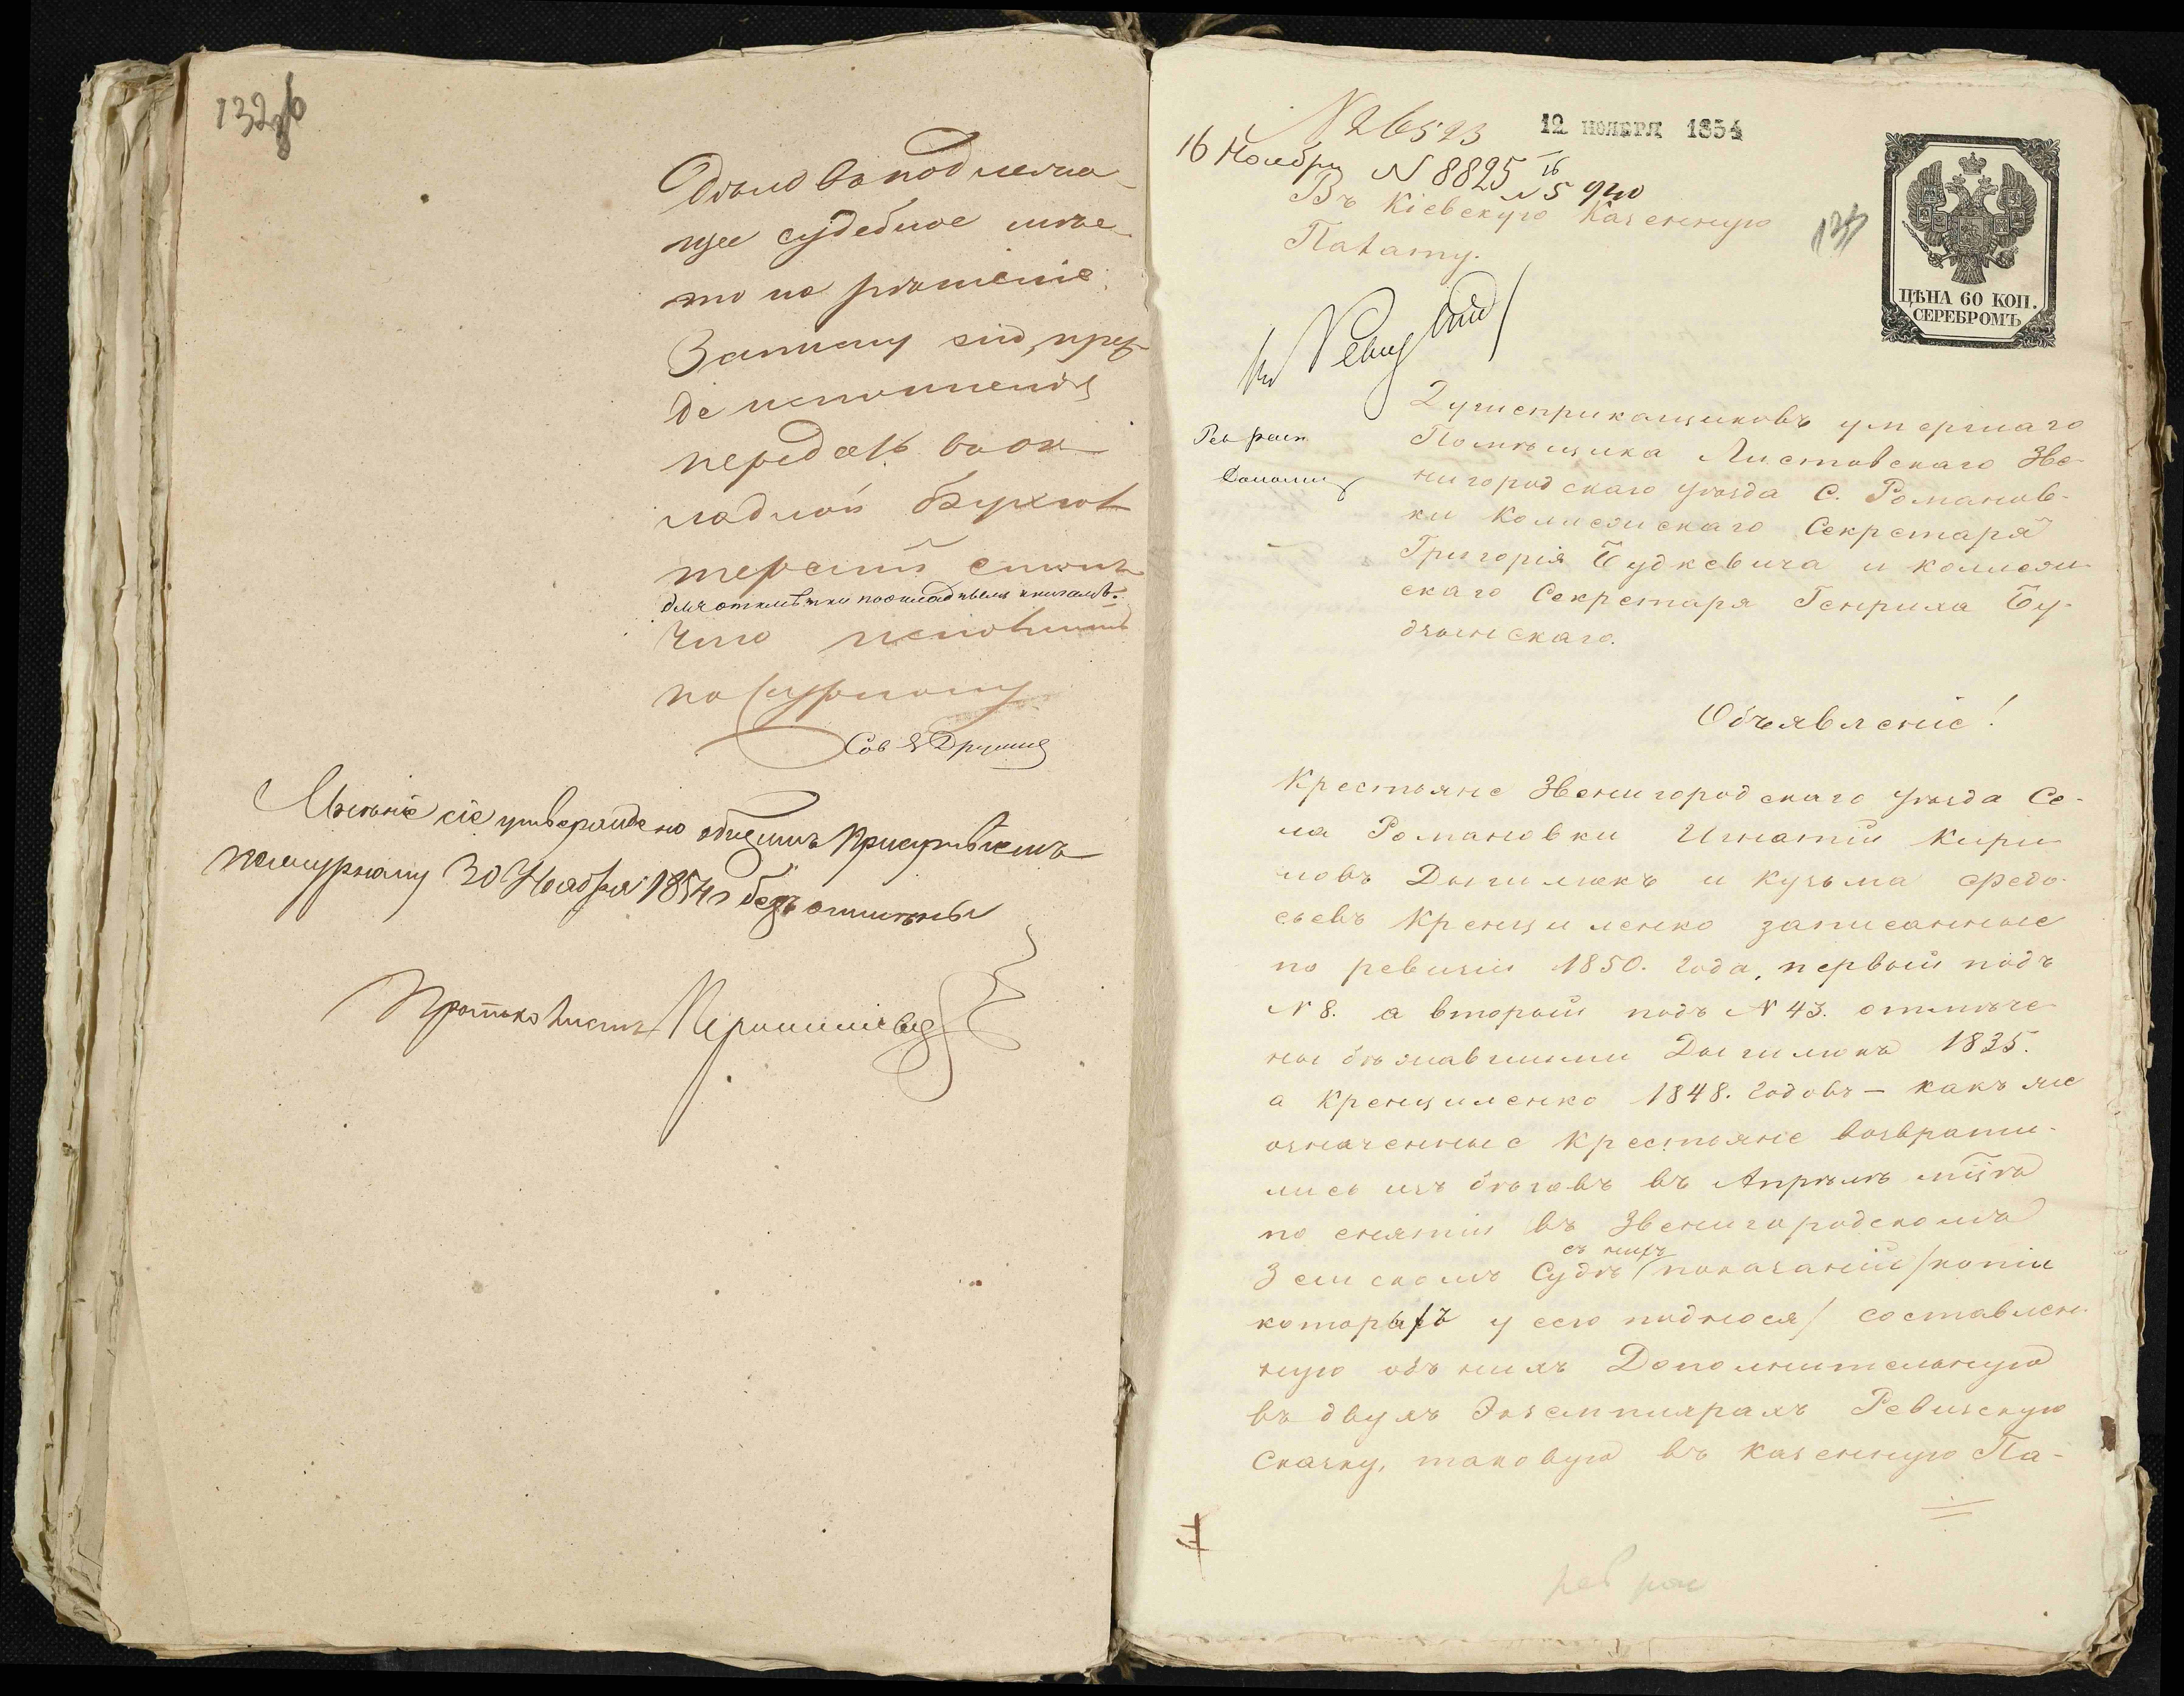 132об
Дѣло въ подлежа-
щее судебное мѣс-
то на рѣшеніе.
Записку сію, преж-
де исполненія
передать въ ок-
ладной Бухгал-
терскій столъ
для отмѣтки по окладнымъ книгамъ.
Что исполнить
по журналу
Сов
Мнѣніе сіе утверждено общимъ Присутствіемъ
по журналу 30 Ноября 1854 г. безъ отмѣны
Протоколистъ
N 26523
12 НОЯБРЯ 1854
16 Ноября N 8825
16
N 5940
Въ Кіевскую Казенную
Палату.
133
ЦѢНА 60 КОП.
СЕРЕБРОМЪ
Рев
Душеприкащиковъ умершаго
Помѣщика Листовскаго Зве-
нигородскаго уѣзда С. Романов-
ки Коллежскаго Секретаря
Григорія Будкевича и коллеж-
скаго Секретаря Генриха Бу-
дзынскаго.
Объявленіе!
Крестьяне Звенигородскаго уѣзда Се-
ла Романовки Игнатій Кири-
ловъ Дыгилюкъ и Кузьма Ѳедо-
сьевъ Кренциленко записанные
по ревизіи 1850. года, первый подъ
N 8. а второй подъ N 43. отмѣче-
ны бѣжавшими Дыгилюкъ 1835.
а Кренциленко 1848. годовъ – какъ же
означенные Крестьяне возврати-
лись изъ бѣговъ въ Апрѣлѣ м̃цѣ
по снятіи въ Звенигородскомъ
съ нихъ
Земскомъ Судѣ показаній /копіи
которыхъ у сего подносся/ составлен-
ную объ нихъ Дополнительную
въ двухъ Экземплярахъ Ревизскую
Сказку, таковую въ Казенную Па-